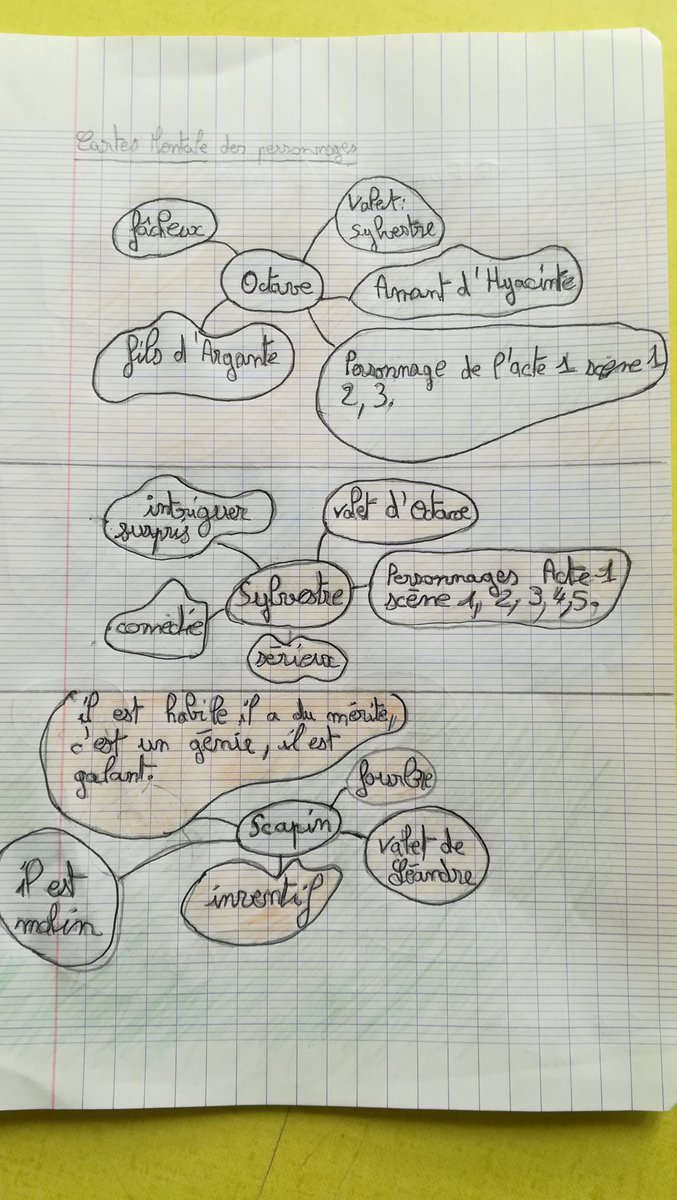 Cartes Mentale des personnages
fâcheux
Valet:
Sylvestre
Octave
Amant d'Hyacinte
fils d'Argante
Personnage de l'acte 1 scène 1
2, 3.
intriguer
surpris
valet d'Octave
Sylvestre
Personnages Acte 1
scène 1, 2, 3, 4, 5.
comédie
sérieux
il est habile, il a du mérite,
c'est un génie, il est
galant.
fourbre
Scapin
Valet de
Léandre
il est
malin
inventif